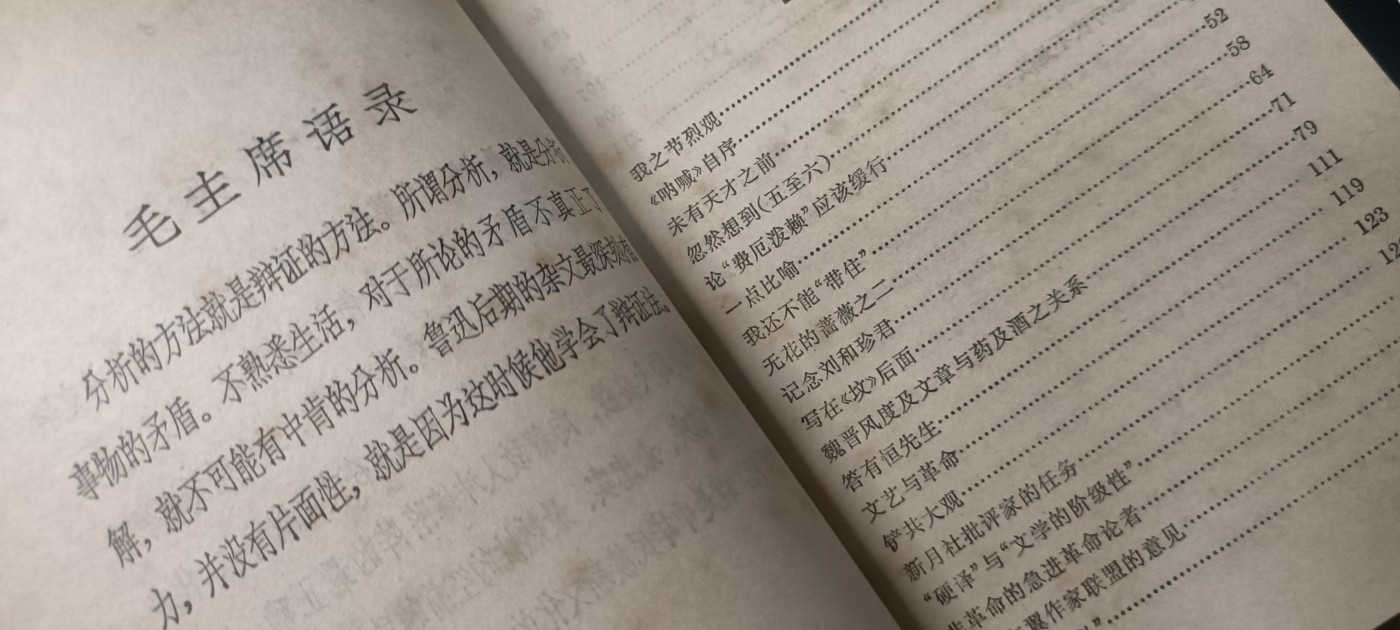 毛主席语录
分析的方法就是辩证的方法。所谓分析，就是分析
事物的矛盾。不熟悉生活，对于所论的矛盾不真正了
解，就不可能有中肯的分析。鲁迅后期的杂文最深刻有
力，并没有片面性，就是因为这时候他学会了辩证法。
我之节烈观
《呐喊》自序
未有天才之前
忽然想到（五至六）
论“费厄泼赖”应该缓行
一点比喻
我还不能“带住”
无花的蔷薇之二
记念刘和珍君
写在《坟》后面
魏晋风度及文章与药及酒之关系
答有恒先生
文艺与革命
铲共大观
新月社批评家的任务
“硬译”与“文学的阶级性”
革命的急进革命论者
翼作家联盟的意见
52
58
64
71
79
111
119
123
12